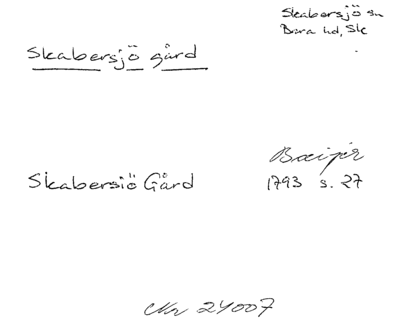 Skabersjö sn
Bara hd, Sk
Skabersjö gård
Skabersiö Gård
1793 s. 27
Nr 24007